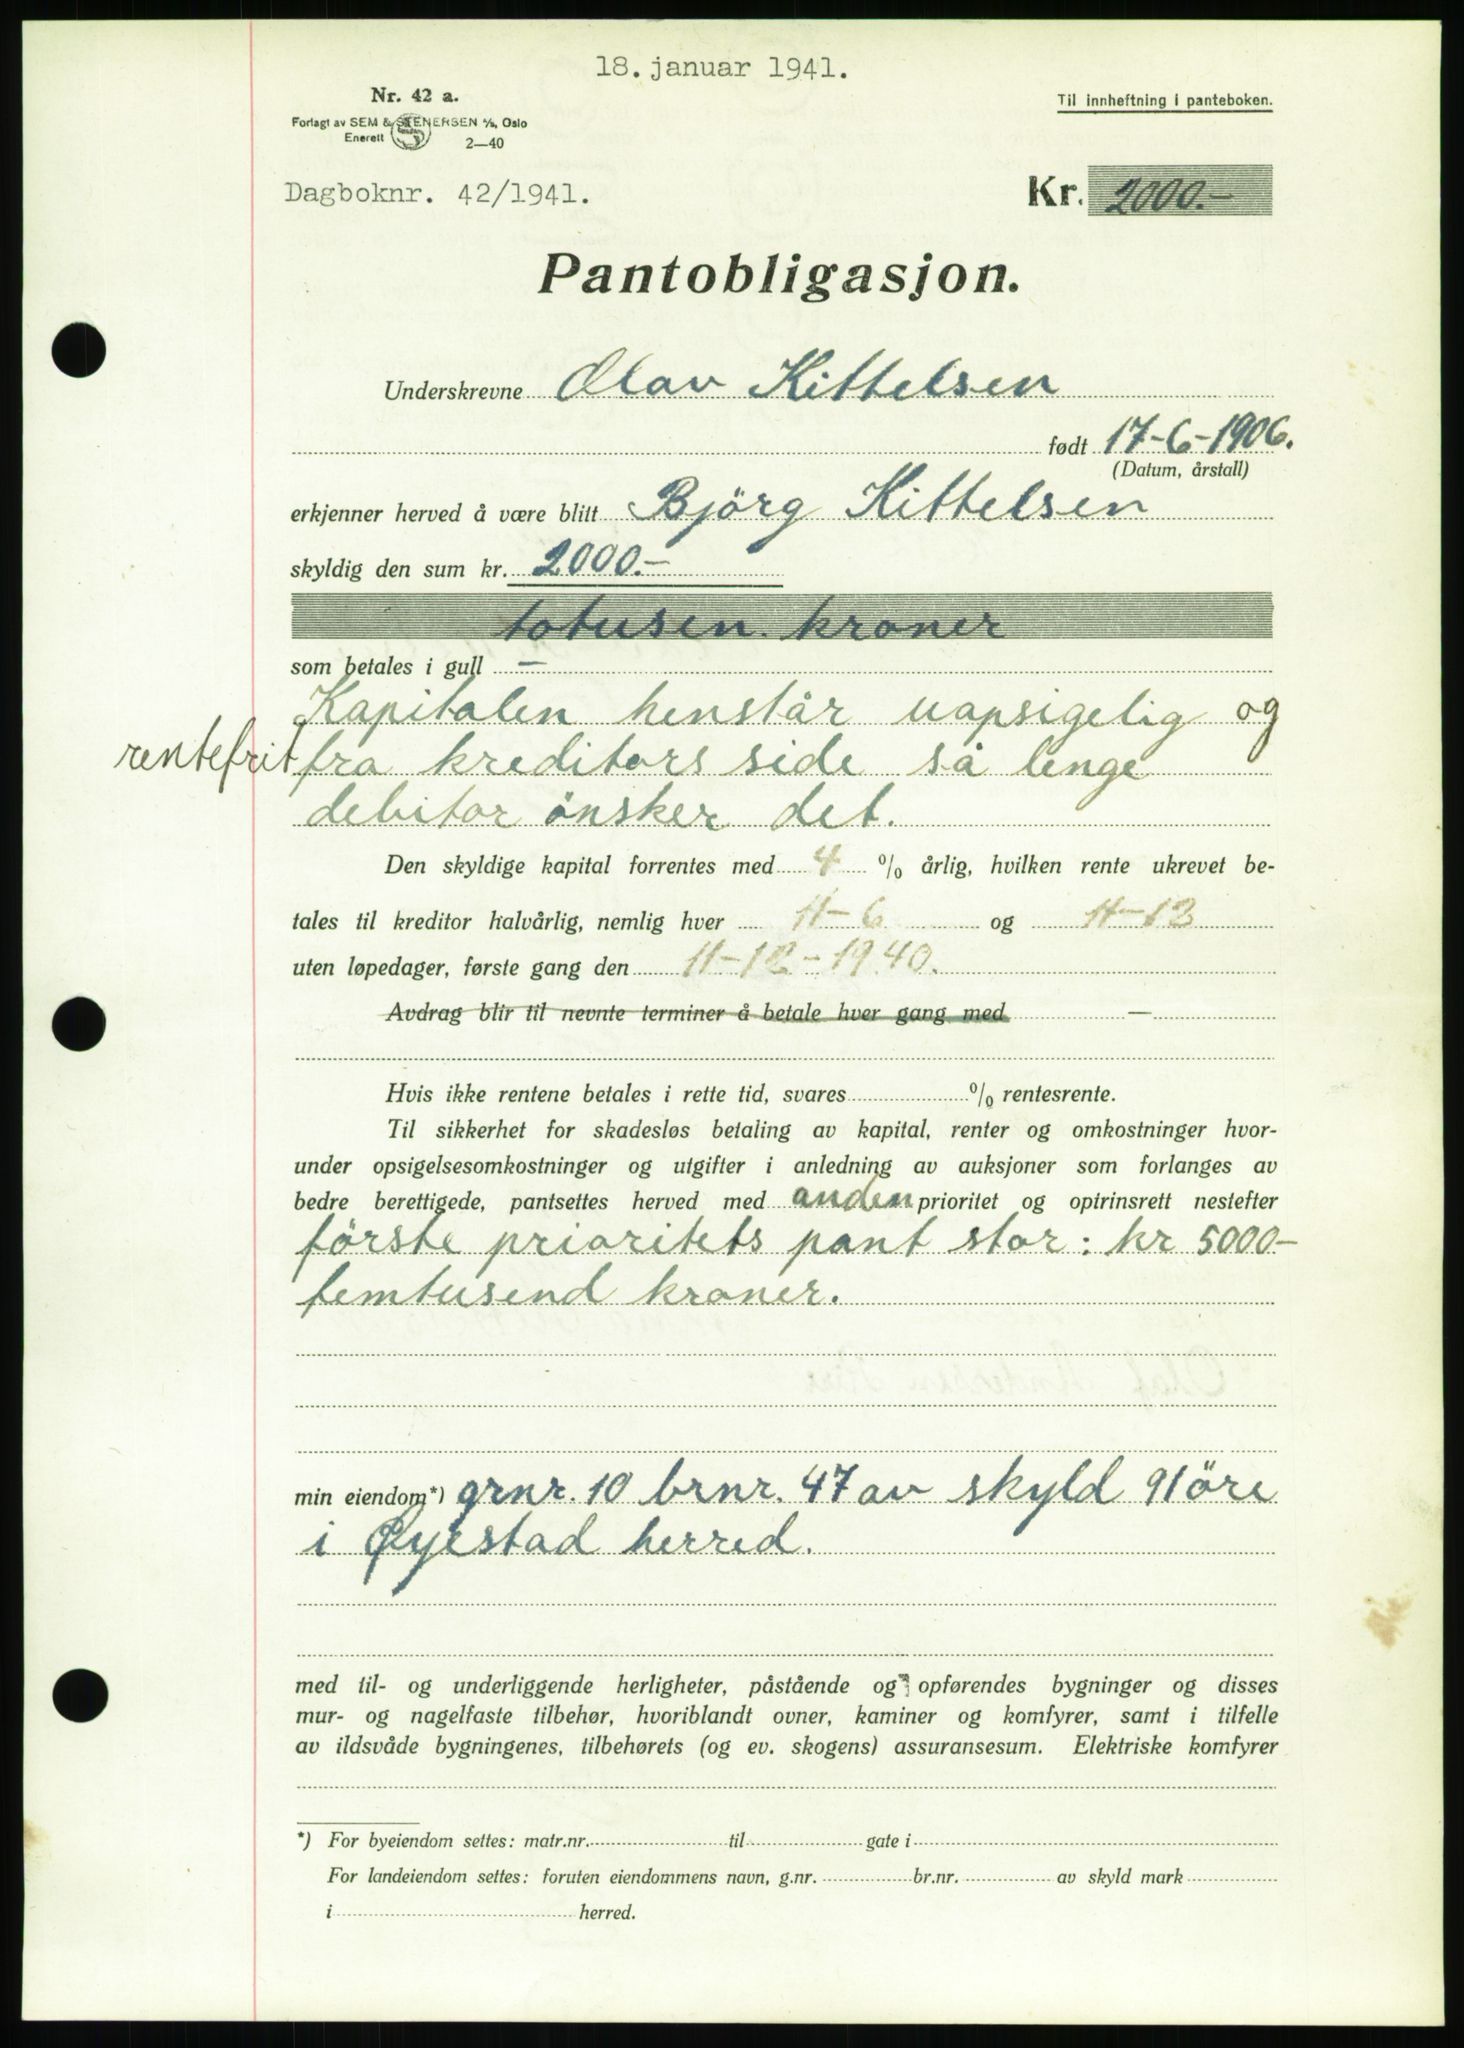 18. januar 1941.
Nr. 42 a.
Til innheftning i panteboken.
Forlagt av SEM & STENERSEN A/S, Oslo
Enerett 2—40
Dagboknr. 42/1941.
Kr. 2000.-
Pantobligasjon.
Underskrevne Olav Kittelsen
født 17-6-1906.
(Datum, årstall)
erkjenner herved å være blitt Björg Kittelsen
skyldig den sum kr. 2000.-
totusen kroner
som betales i gull —
Kapitalen henstår uapsigelig og
rentefrit fra kreditors side så lenge
debitor önsker det.
Den skyldige kapital forrentes med 4 % årlig, hvilken rente ukrevet be-
tales til kreditor halvårlig, nemlig hver 11-6 og 11-12
uten løpedager, første gang den 11-12-1940.
Avdrag blir til nevnte terminer å betale hver gang med —
Hvis ikke rentene betales i rette tid, svares % rentesrente.
Til sikkerhet for skadesløs betaling av kapital, renter og omkostninger hvor-
under opsigelsesomkostninger og utgifter i anledning av auksjoner som forlanges av
bedre berettigede, pantsettes herved med anden prioritet og optrinsrett nestefter
förste prioritets pant stor: kr 5000-
femtusend kroner.
min eiendom*) grnr. 10 brnr. 47 av skyld 91 öre
i Øyestad herred.
med til- og underliggende herligheter, påstående og opførendes bygninger og disses
mur- og nagelfaste tilbehør, hvoriblandt ovner, kaminer og komfyrer, samt i tilfelle
av ildsvåde bygningenes, tilbehørets (og ev. skogens) assuransesum. Elektriske komfyrer
*) For byeiendom settes: matr.nr. til gate i
For landeiendom settes: foruten eiendommens navn, g.nr. br.nr. av skyld mark
i herred.